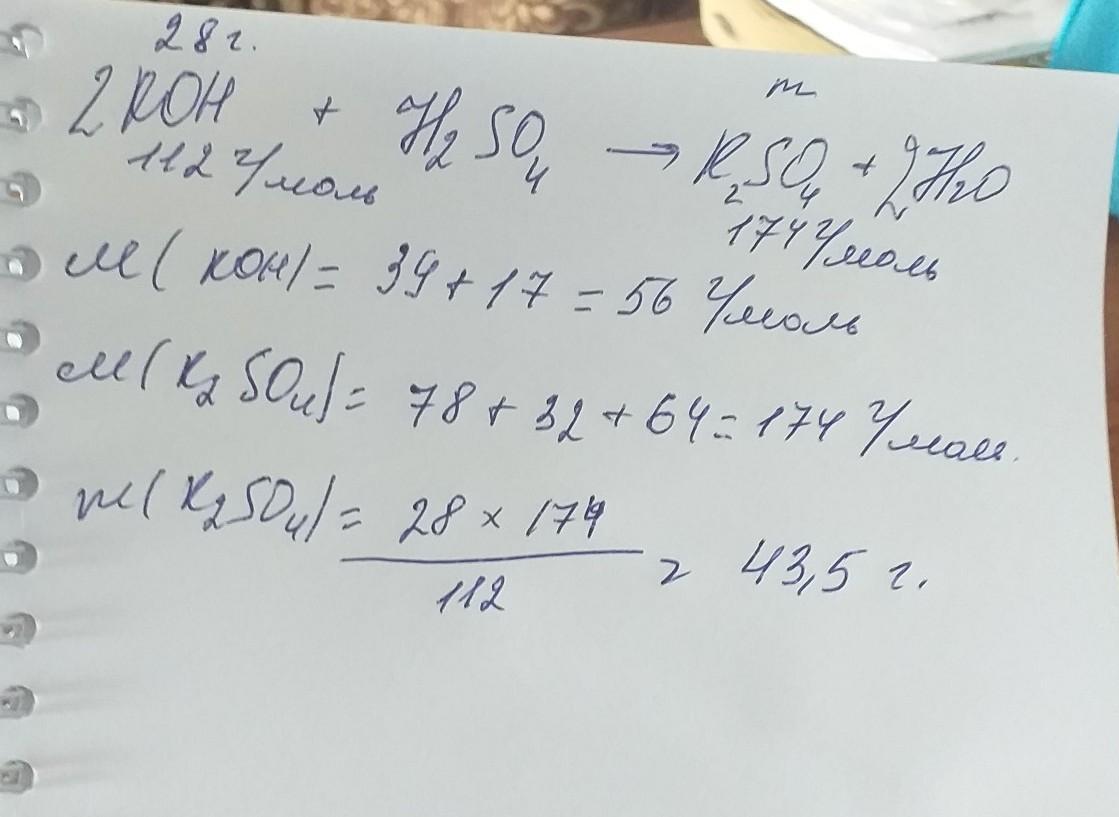 28 г.
m
2KOH + H₂SO₄ → K₂SO₄ + 2H₂O
112 г/моль
174 г/моль
M(KOH) = 39 + 17 = 56 г/моль
M(K₂SO₄) = 78 + 32 + 64 = 174 г/моль.
m(K₂SO₄) = 28 × 174
112
= 43,5 г.